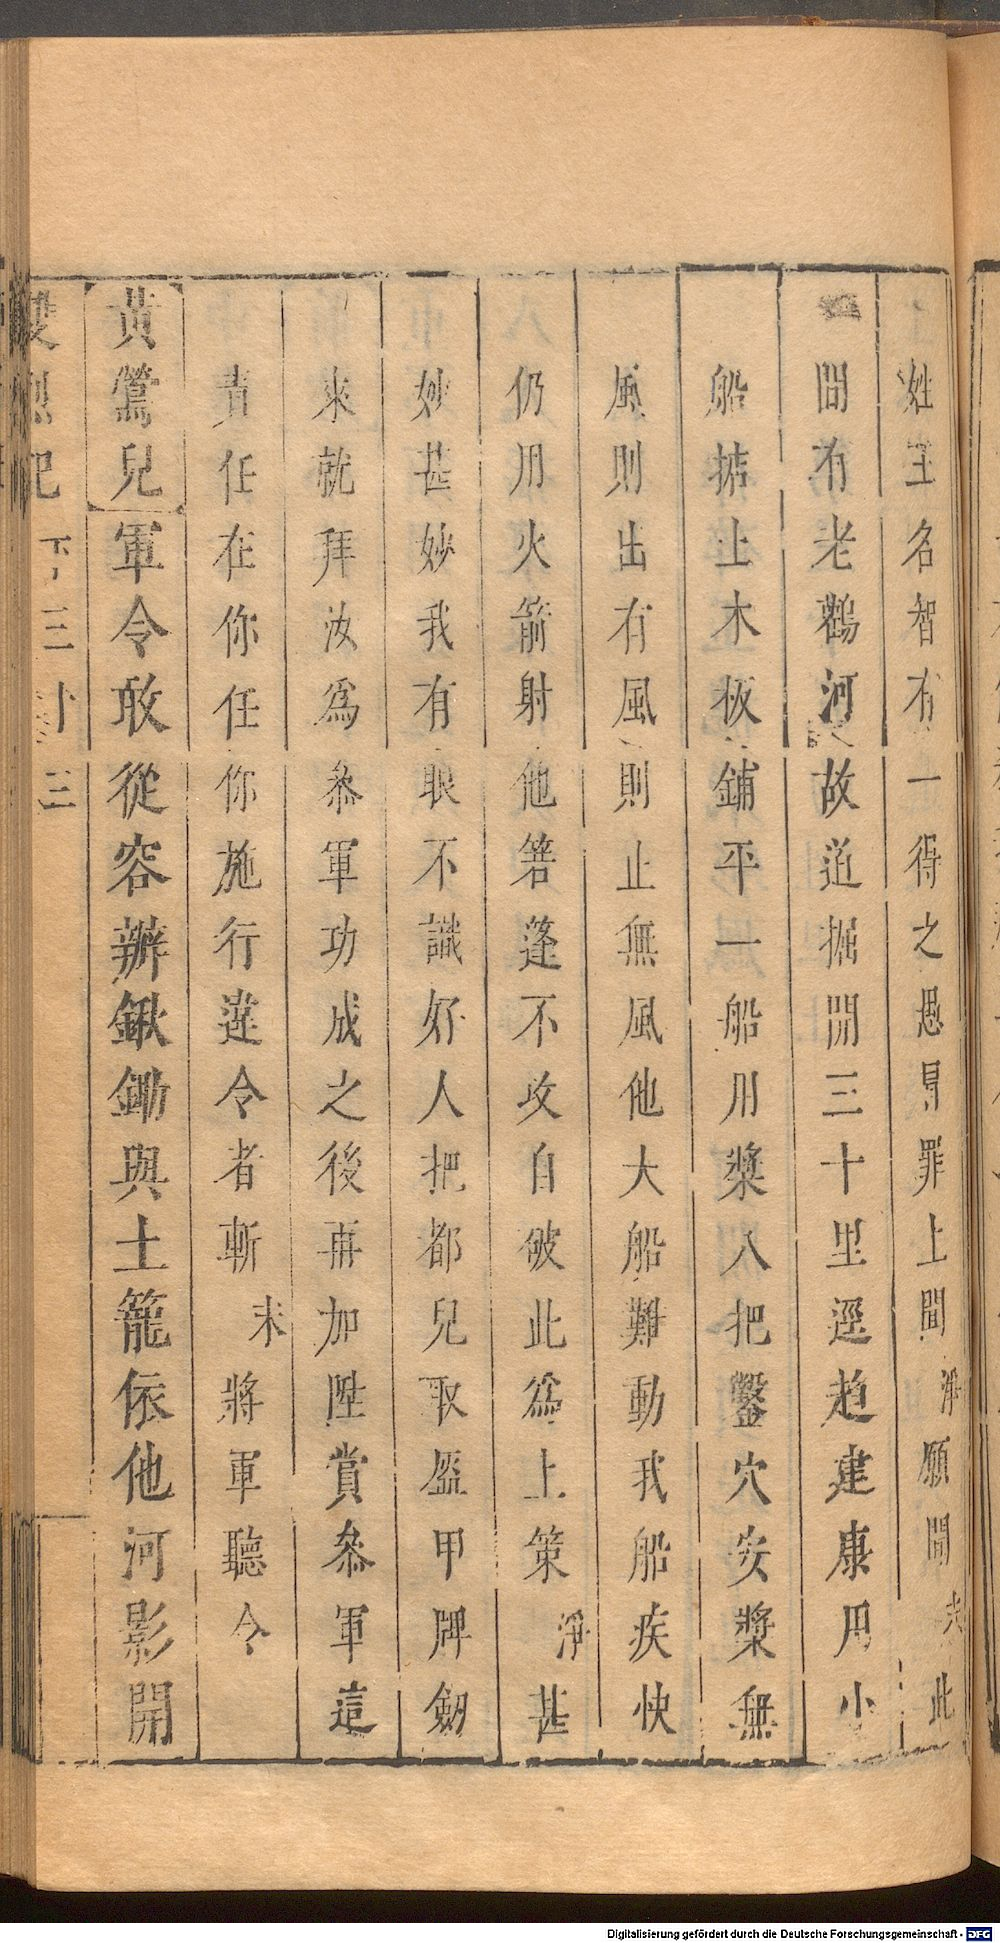 姓王名智有一得之愚冒罪上聞淨願聞末此
間有老鸛河故道掘開三十里逕趋建康用小
船掂上木板鋪平一船用槳八把鑿穴安槳無
風則出有風則止無風他大船難動我船疾快
仍用火箭射他箬蓬不攻自破此爲上策淨甚
妙甚妙我有眼不識好人把都兒取盔甲牌劒
來就拜汝爲叅軍功成之後再加陞賞叅軍這
責任在你任你施行違令者斬末將軍聽令
黃鶯兒軍令敢從容辨鍬鋤與土籠依他河影開
雙烈記 下 三十三
Digitalisierung gefördert durch die Deutsche Forschungsgemeinschaft - DFG